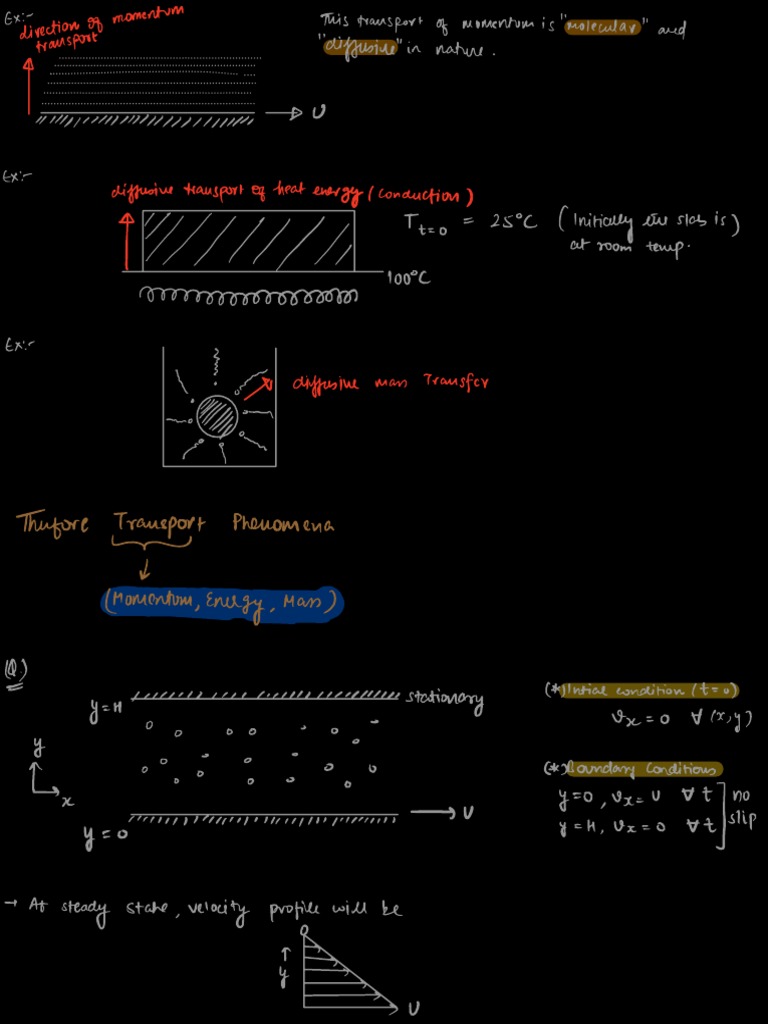 Ex:-
direction of momentum
transport
This transport of momentum is "molecular" and
"diffusive" in nature.
U
Ex:-
diffusive transport of heat energy (conduction)
T t=0 = 25°C (Initially the slab is)
at room temp.
100°C
Ex:-
diffusive mass Transfer
Therfore Transport Phenomena
(Momentum, Energy, Mass)
(Q.)
y=H
stationary
y
x
U
y=0
(*) Intial condition (t=0)
vx=0 ∀ (x,y)
(*) Boundary Conditions
y=0, vx=U ∀t
y=H, vx=0 ∀t
no
slip
→ At steady state, velocity profile will be
0
↑
y
U